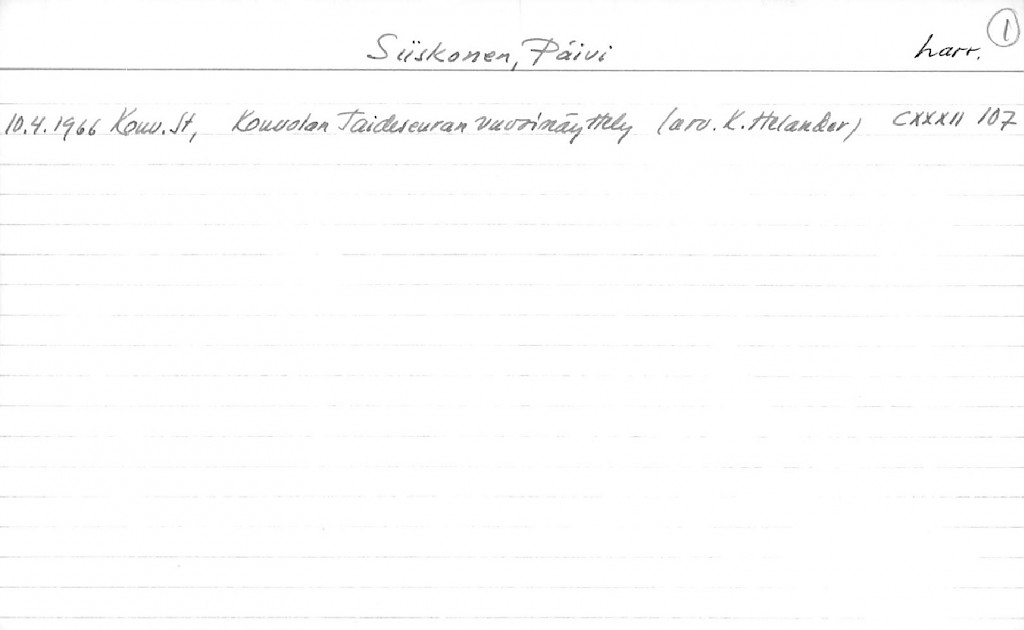 Siiskonen, Päivi harr. 1
10.4.1966 Kouv. St, Kouvolan Taideseuran vuosinäyttely (arv. K. Helander) CXXXII 107